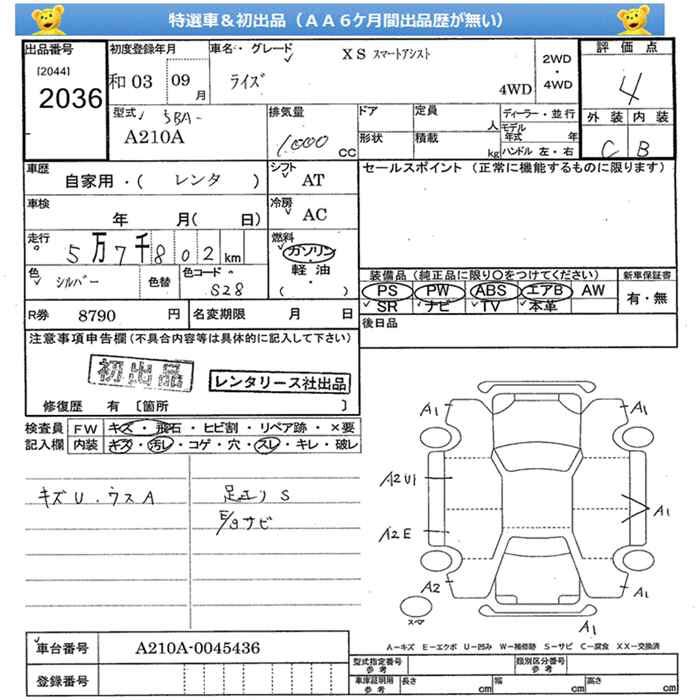 特選車&初出品(AA6ケ月間出品歴が無い)
出品番号
[2044]
2036
初度登録年月
和03 09月
車名・グレード
XS スマートアシスト
ライズ
4WD
2WD・4WD
評価点
4
外装 内装
C B
型式
5BA-
A210A
排気量
1,000 CC
ドア
形状
定員 人
積載 kg
ディーラー・並行
モデル年式 年
ハンドル 左・右
車歴
自家用・( レンタ )
シフト AT
セールスポイント (正常に機能するものに限ります)
車検 年 月( 日)
冷房 AC
走行
5万7千802km
燃料
ガソリン
軽油
( ・ )
色 シルバー 色替
色コード
S28
装備品(純正品に限り○をつけてください)
新車保証書
PS PW ABS エアB AW
有・無
SR ナビ TV 本革
R券 8790 円
名変期限 月 日
後日品
注意事項申告欄(不具合内容等は具体的に記入して下さい)
初出品
レンタリース社出品
修復歴 有 [箇所 ]
検査員記入欄
FW キズ・飛石・ヒビ割・リペア跡・×要
内装 キズ・汚レ・コゲ・穴・スレ・キレ・破レ
キズU.ウスA
足廻リS
E/gサビ
A1 A1
A2U1
A1
A2E
A2 A1
スペア
A1
A-キズ E-エクボ U-凹み W-補修跡 S-サビ C-腐食 XX-交換済
車台番号 A210A-0045436
登録番号
型式指定番号 参考
類別区分番号 参考
車庫証明用 参考
長さ cm
幅 cm
高さ cm